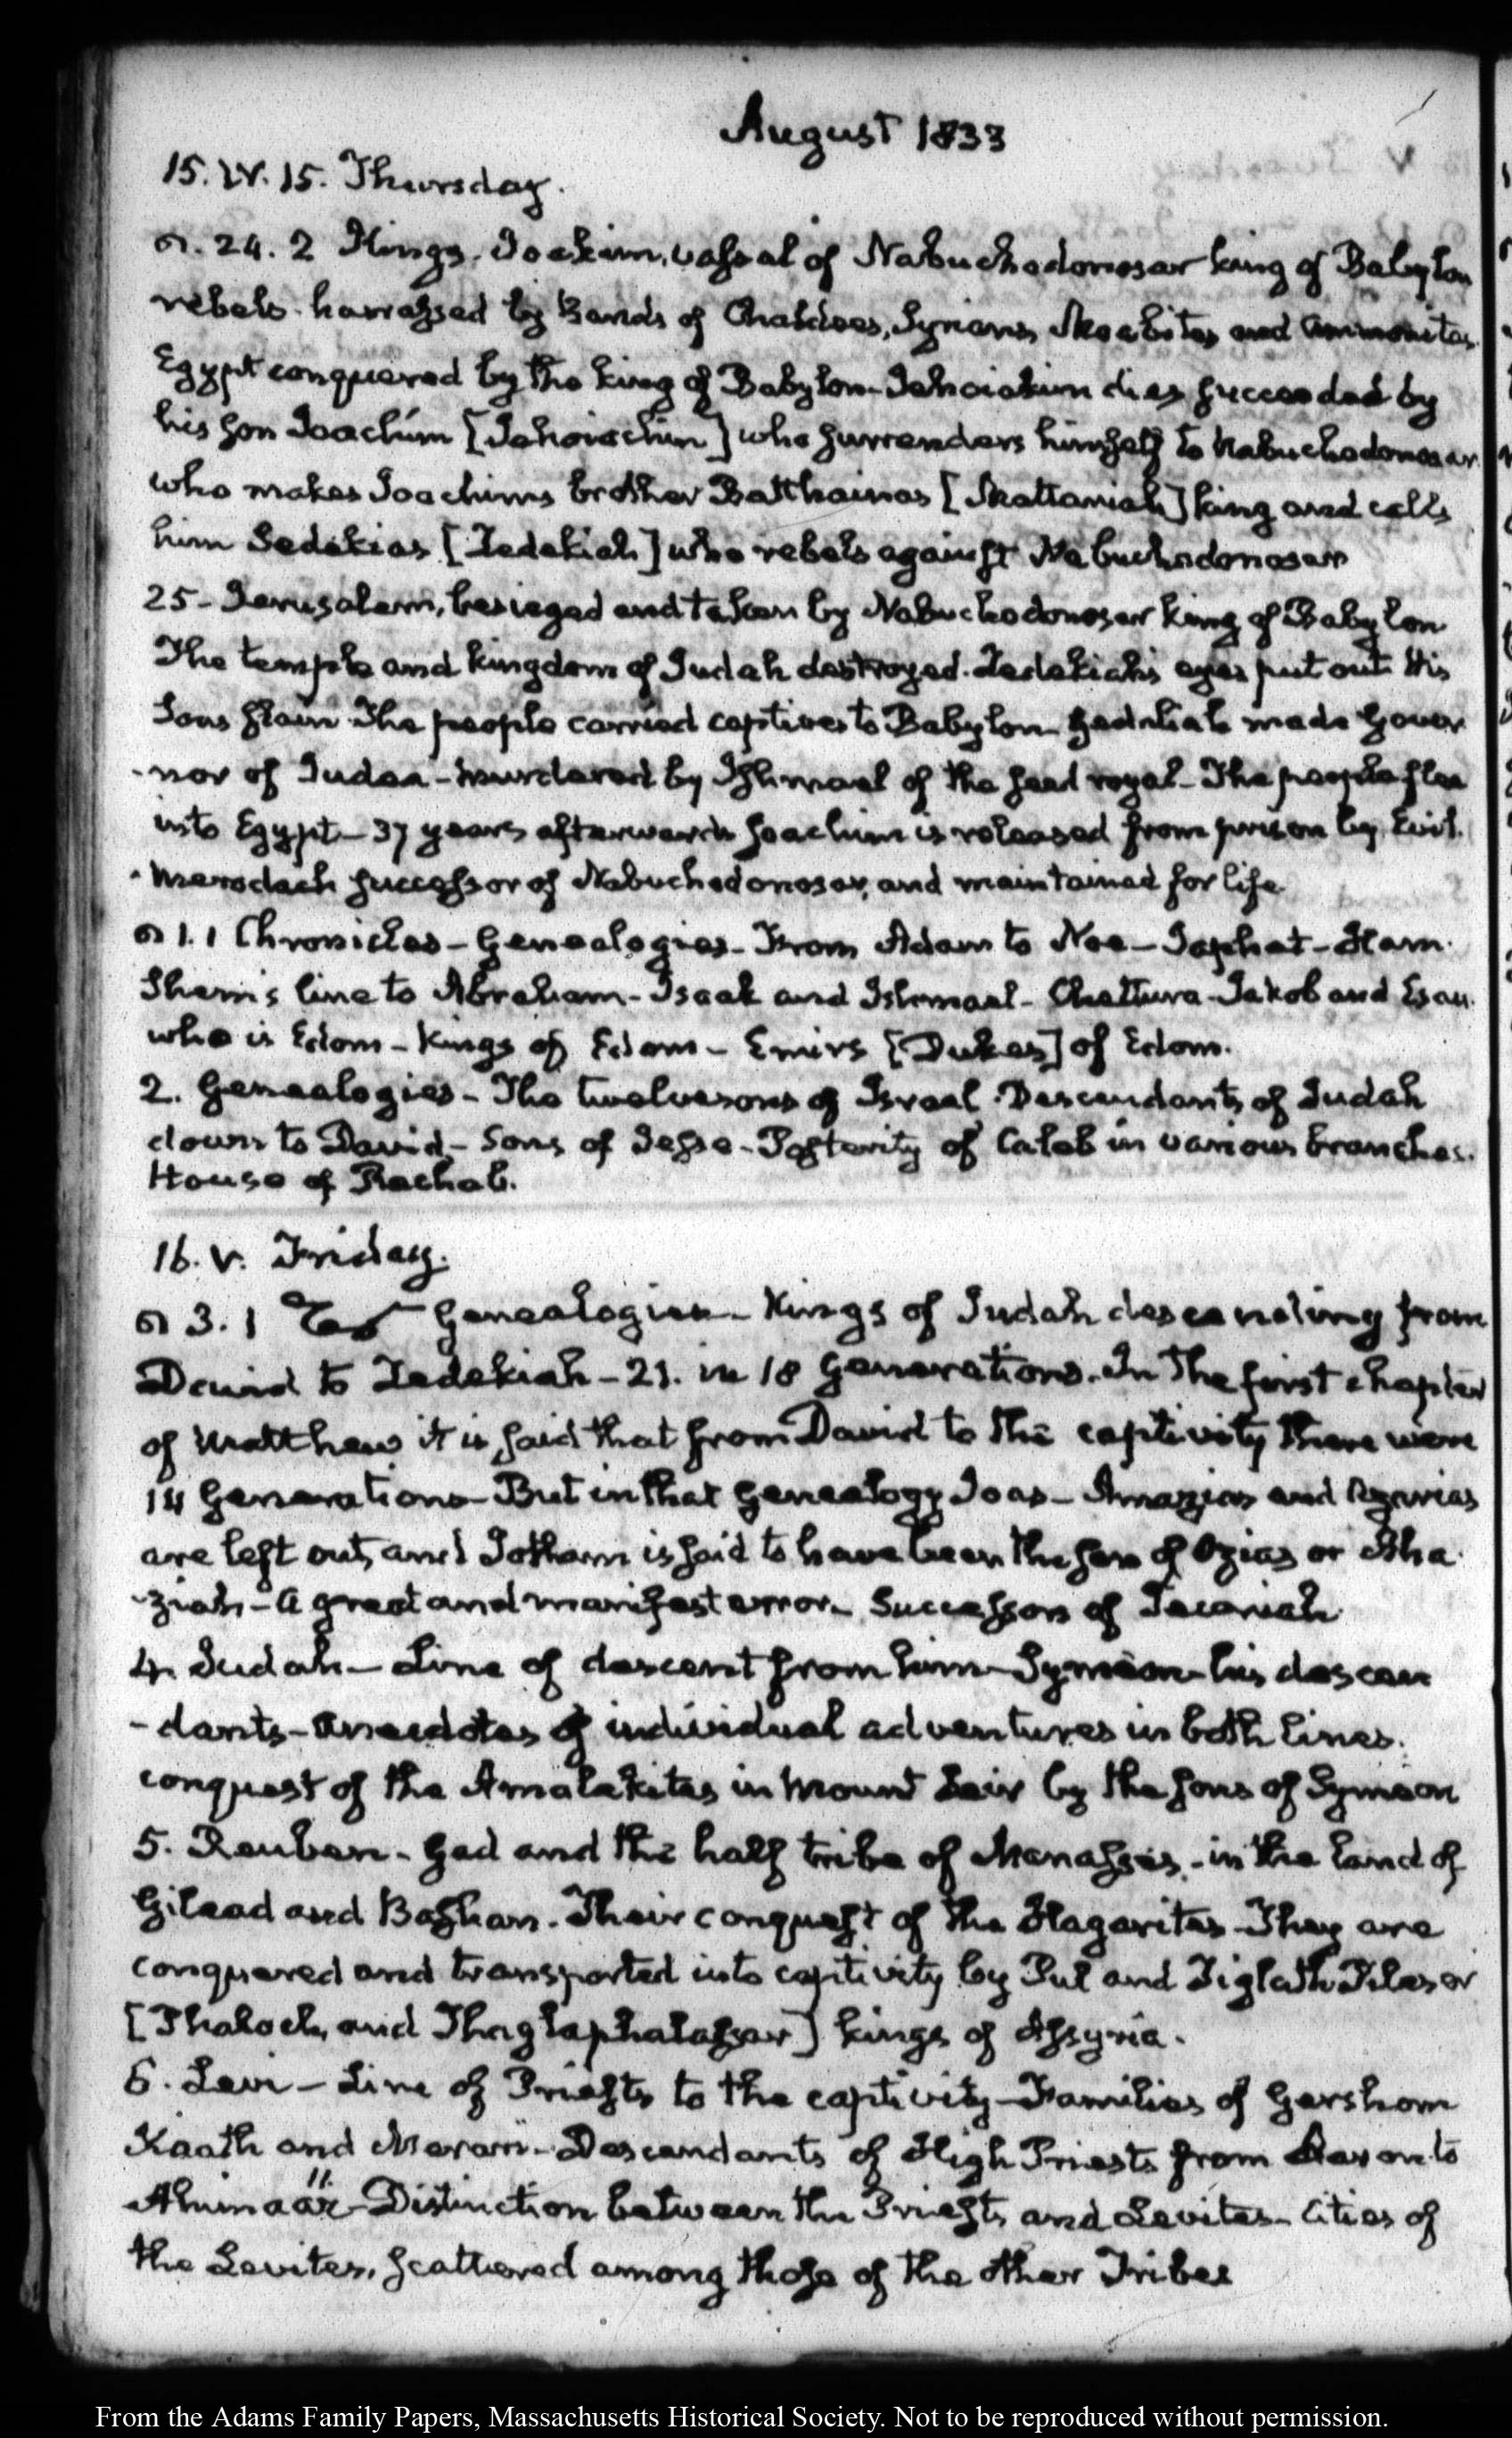 August 1833
15. IV. 15. Thursday.
24. 2 Kings. Joakim, vassal of Nabuchodonosar king of Babylon
rebels. harrassed by Bands of Chaldees, Syrians, Moabites and Ammonites.
Egypt conquered by the king of Babylon—Jehoiakim dies succeeded by
his son Joachim [Jehoiachin] who surrenders himself to Nabuchodonosar
who makes Joachims brother Batthainas [Mattaniah] king and calls
him Sedekias [Zedekiah] who rebels against Nabuchodonosar
25—Jerusalem, besieged and taken by Nabuchodonosar king of Babylon
The temple and kingdom of Judah destroyed. Zedekiah's eyes put out His
Sons slain. The people carried captives to Babylon—Gedaliah made Gover
-nor of Judea—murdered by Ishmael of the seed royal—The people flee
into Egypt—37 years afterwards Joachim is released from prison by Evil.
-Merodach successor of Nabuchodonosor, and maintained for life
1. 1 Chronicles—Genealogies—From Adam to Noe—Japhet—Ham.
Shem's line to Abraham—Isaak and Ishmael—Chettura—Jakob and Esau.
who is Edom—Kings of Edom—Emirs [Dukes] of Edom.
2. Genealogies—The twelve sons of Israel. Descendants of Judah
down to David—Sons of Jesse—Posterity of Caleb in various branches.
House of Rachab.
16. V. Friday.
3. 1 Genealogies—Kings of Judah descending from
David to Zedekiah—21. in 18 Generations. In The first chapter
of Matthew it is said that from David to the captivity there were
14 Generations—But in that Genealogy Joas—Amazias and Azarias
are left out, and Jotham is said to have been the son of Ozias or Aha
-ziah—a great and manifest error—Successors of Jecaniah
4. Judah—Line of descent from him—Symeon—his descen
-dants—Anecdotes of individual adventures in both lines.
conquest of the Amalakites in Mount Seir by the sons of Symeon
5. Reuben—Gad and the half tribe of Manasses,—in the land of
Gilead and Bashan. Their conquest of the Hagarites—They are
conquered and transported into captivity by Pul and Tiglath Pilesor
[Phaloch, and Thaglaphalassar] kings of Assyria.
6. Levi—Line of Priests to the captivity—Families of Gershom
Kaath and Merari—Descendants of High Priests from Aaron to
Ahimaär—Distinction between the Priests, and Levites—Cities of
the Levites, scattered among those of the other Tribes
From the Adams Family Papers, Massachusetts Historical Society. Not to be reproduced without permission.